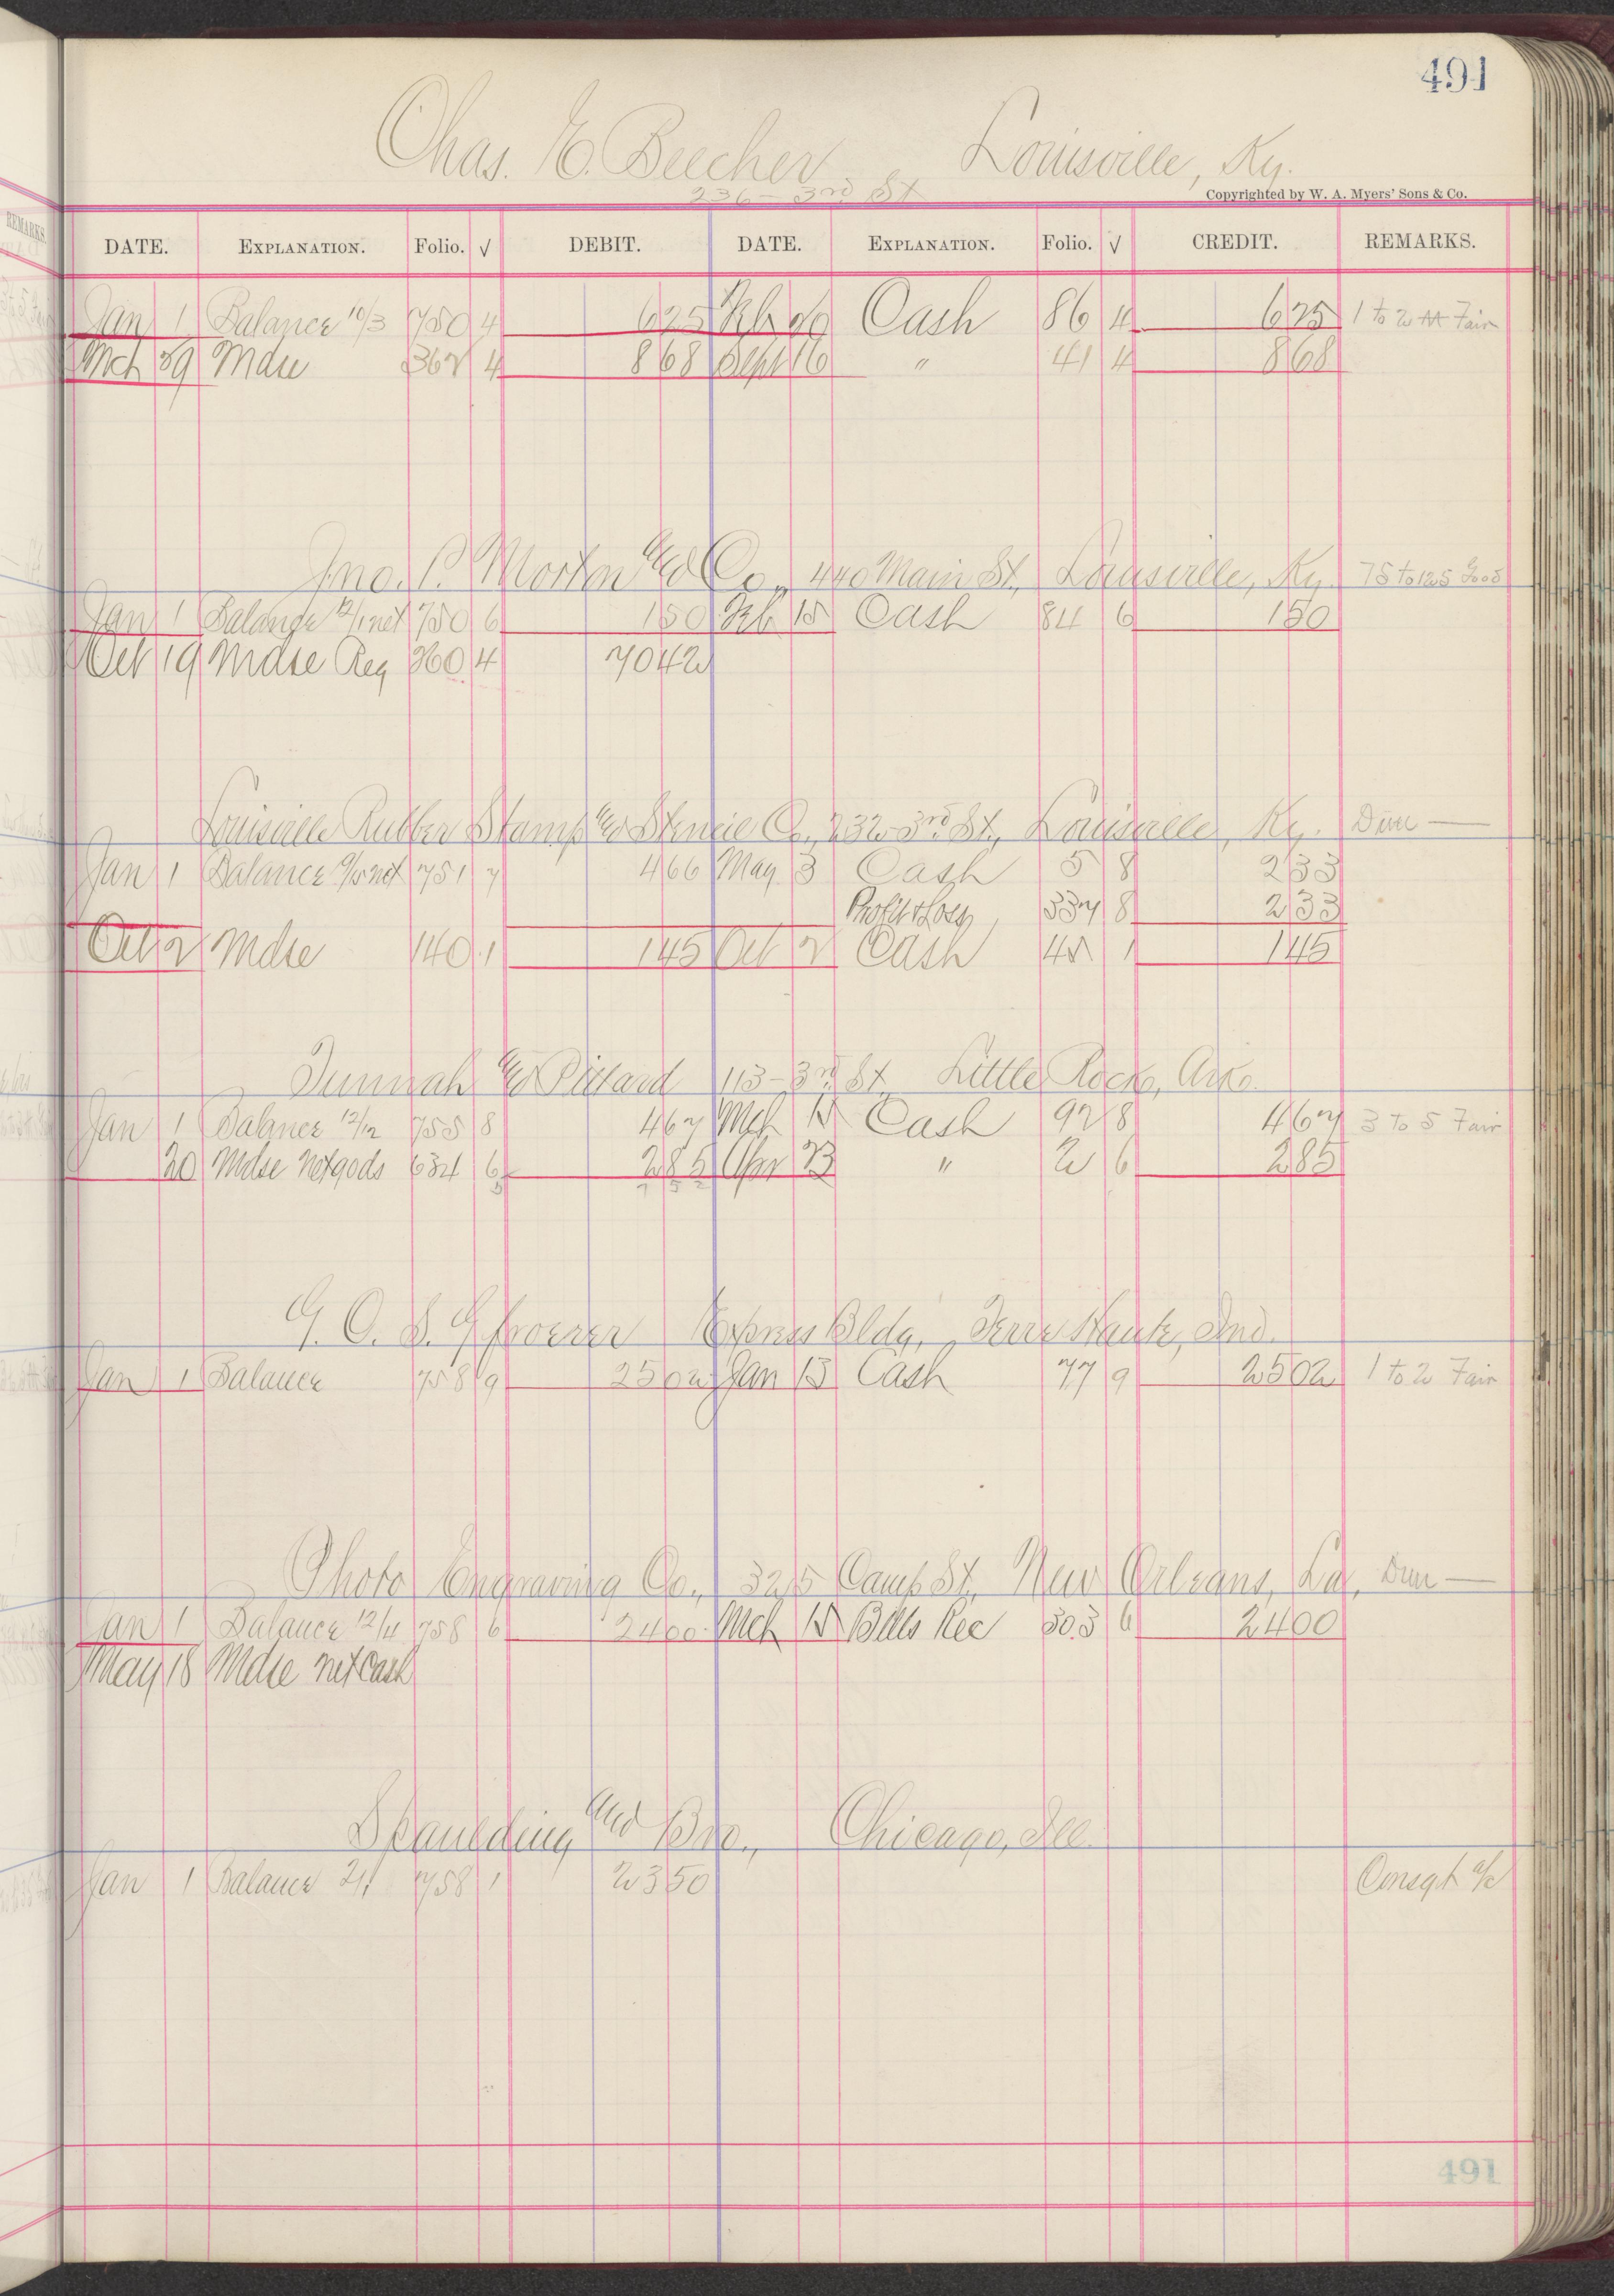 491
Chas. E. Beecher Louisville, Ky.
236 - 3rd St
Copyrighted by W. A. Myers' Sons & Co.
DATE. EXPLANATION. Folio. √ DEBIT. DATE. EXPLANATION. Folio. √ CREDIT. REMARKS.
Jan 1 Balance 10/3 750 4 6 25 Feb 26 Cash 86 4 6 25 1 to 2 M Fair
Mch 29 Mdse 362 4 8 68 Sept 16 " 41 4 8 68
Jno. P. Morton and Co., 440 Main St., Louisville, Ky. 75 to 125 Good
Jan 1 Balance 12/1 net 750 6 1 50 Feb 15 Cash 84 6 1 50
Oct 19 Mdse Reg 260 4 70 42
Louisville Rubber Stamp and Stencil Co., 232 3rd St., Louisville, Ky. Dun —
Jan 1 Balance 9/15 net 751 7 4 66 May 3 Cash 5 8 2 33
Profit & Loss 337 8 2 33
Oct 2 Mdse 140 1 1 45 Oct 2 Cash 45 1 1 45
Tunnah and Pittard 113 - 3rd St. Little Rock, Ark.
Jan 1 Balance 12/12 755 8 4 67 Mch 15 Cash 92 8 4 67 3 to 5 Fair
20 Mdse net gods 634 6 2 85 Apr 23 " 2 6 2 85
7 52
G. O. S. Gfroerer Express Bldg., Terre Haute, Ind.
Jan 1 Balance 758 9 25 02 Jan 13 Cash 77 9 25 02 1 to 2 Fair
Photo Engraving Co., 325 Camp St., New Orleans, La. Dun —
Jan 1 Balance 12/11 758 6 24 00 Mch 15 Bills Rec 303 6 24 00
May 18 Mdse net Cash
Spaulding and Bro., Chicago, Ill.
Jan 1 Balance 2/1 758 1 23 50 Consgt a/c
491